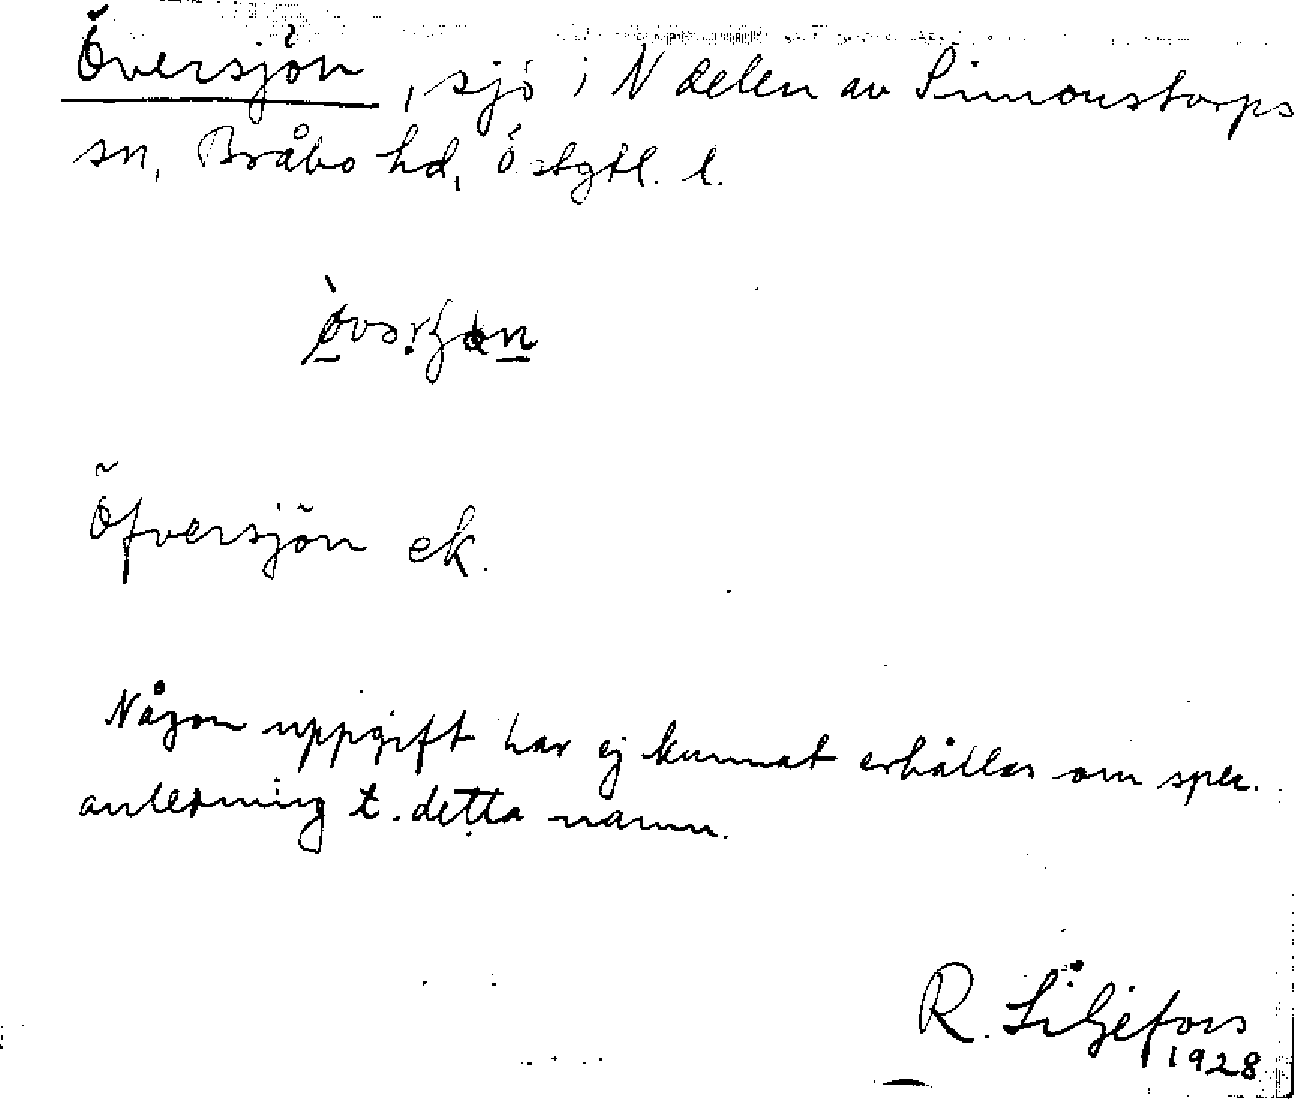 Översjön, sjö i N delen av Simonstorps
sn, Bråbo hd, Östgtl. l.
Öfversjön ek.
Någon uppgift har ej kunnat erhållas om spec.
anledning t. detta namn.
R. Liljefors
1928